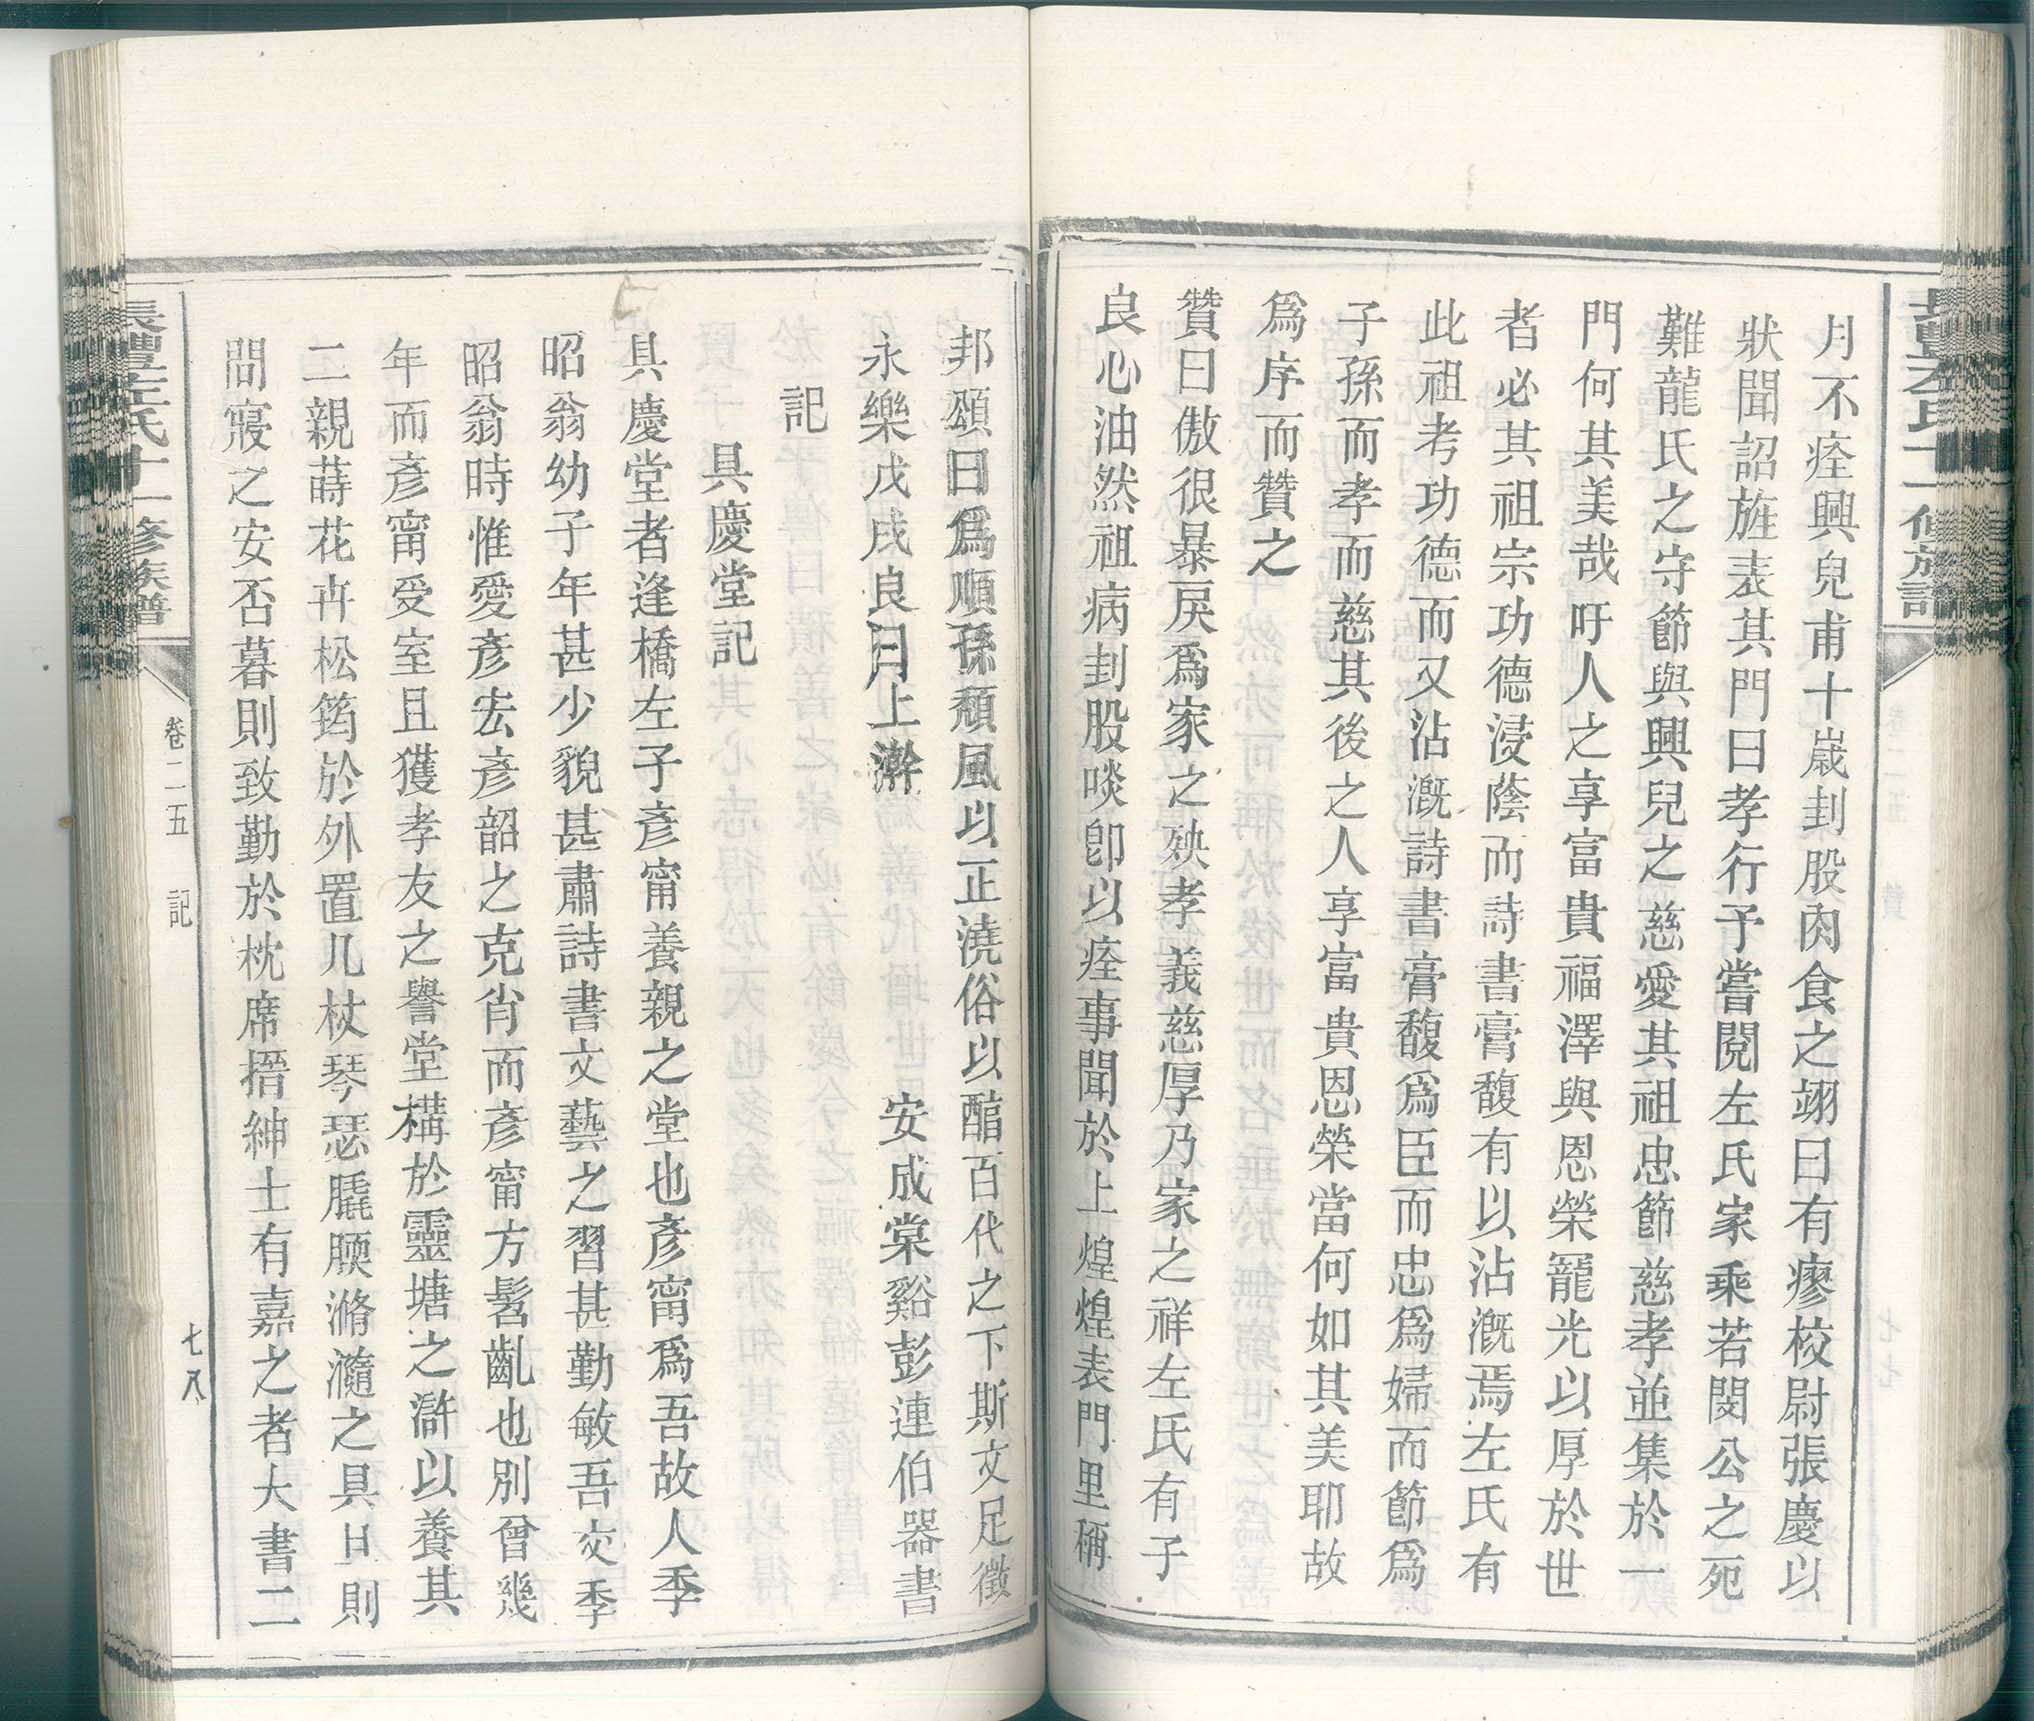 月不痊興兒甫十歲刲股肉食之翊日有瘳校尉張慶以
狀聞詔旌表其門曰孝行予嘗閱左氏家乘若閔公之死
難龍氏之守節與興兒之慈愛其祖忠節慈孝並集於一
門何其美哉吁人之享富貴福澤與恩榮寵光以厚於世
者必其祖宗功德浸蔭而詩書膏馥有以沾漑焉左氏有
此祖考功德而又沾漑詩書膏馥爲臣而忠爲婦而節爲
子孫而孝而慈其後之人享富貴恩榮當何如其美耶故
爲序而贊之
贊曰傲很暴戾爲家之殃孝義慈厚乃家之祥左氏有子
良心油然祖病刲股啖卽以痊事聞於上煌煌表門里稱
邦頌曰爲順孫頹風以正澆俗以酯百代之下斯文足徵
永樂戊戌良月上澣 安成棠谿彭連伯器書
記
具慶堂記
具慶堂者逢橋左子彥甯養親之堂也彥甯爲吾故人季
昭翁幼子年甚少貌甚肅詩書文藝之習甚勤敏吾交季
昭翁時惟愛彥宏彥韶之克肖而彥甯方髫齓也別曾幾
年而彥甯受室且獲孝友之譽堂構於靈塘之滸以養其
二親蒔花卉松筠於外置几杖琴瑟膬腝滫瀡之具日則
問寢之安否暮則致勤於枕席搢紳士有嘉之者大書二
長醴左氏十一修族譜
卷二五 記
七八